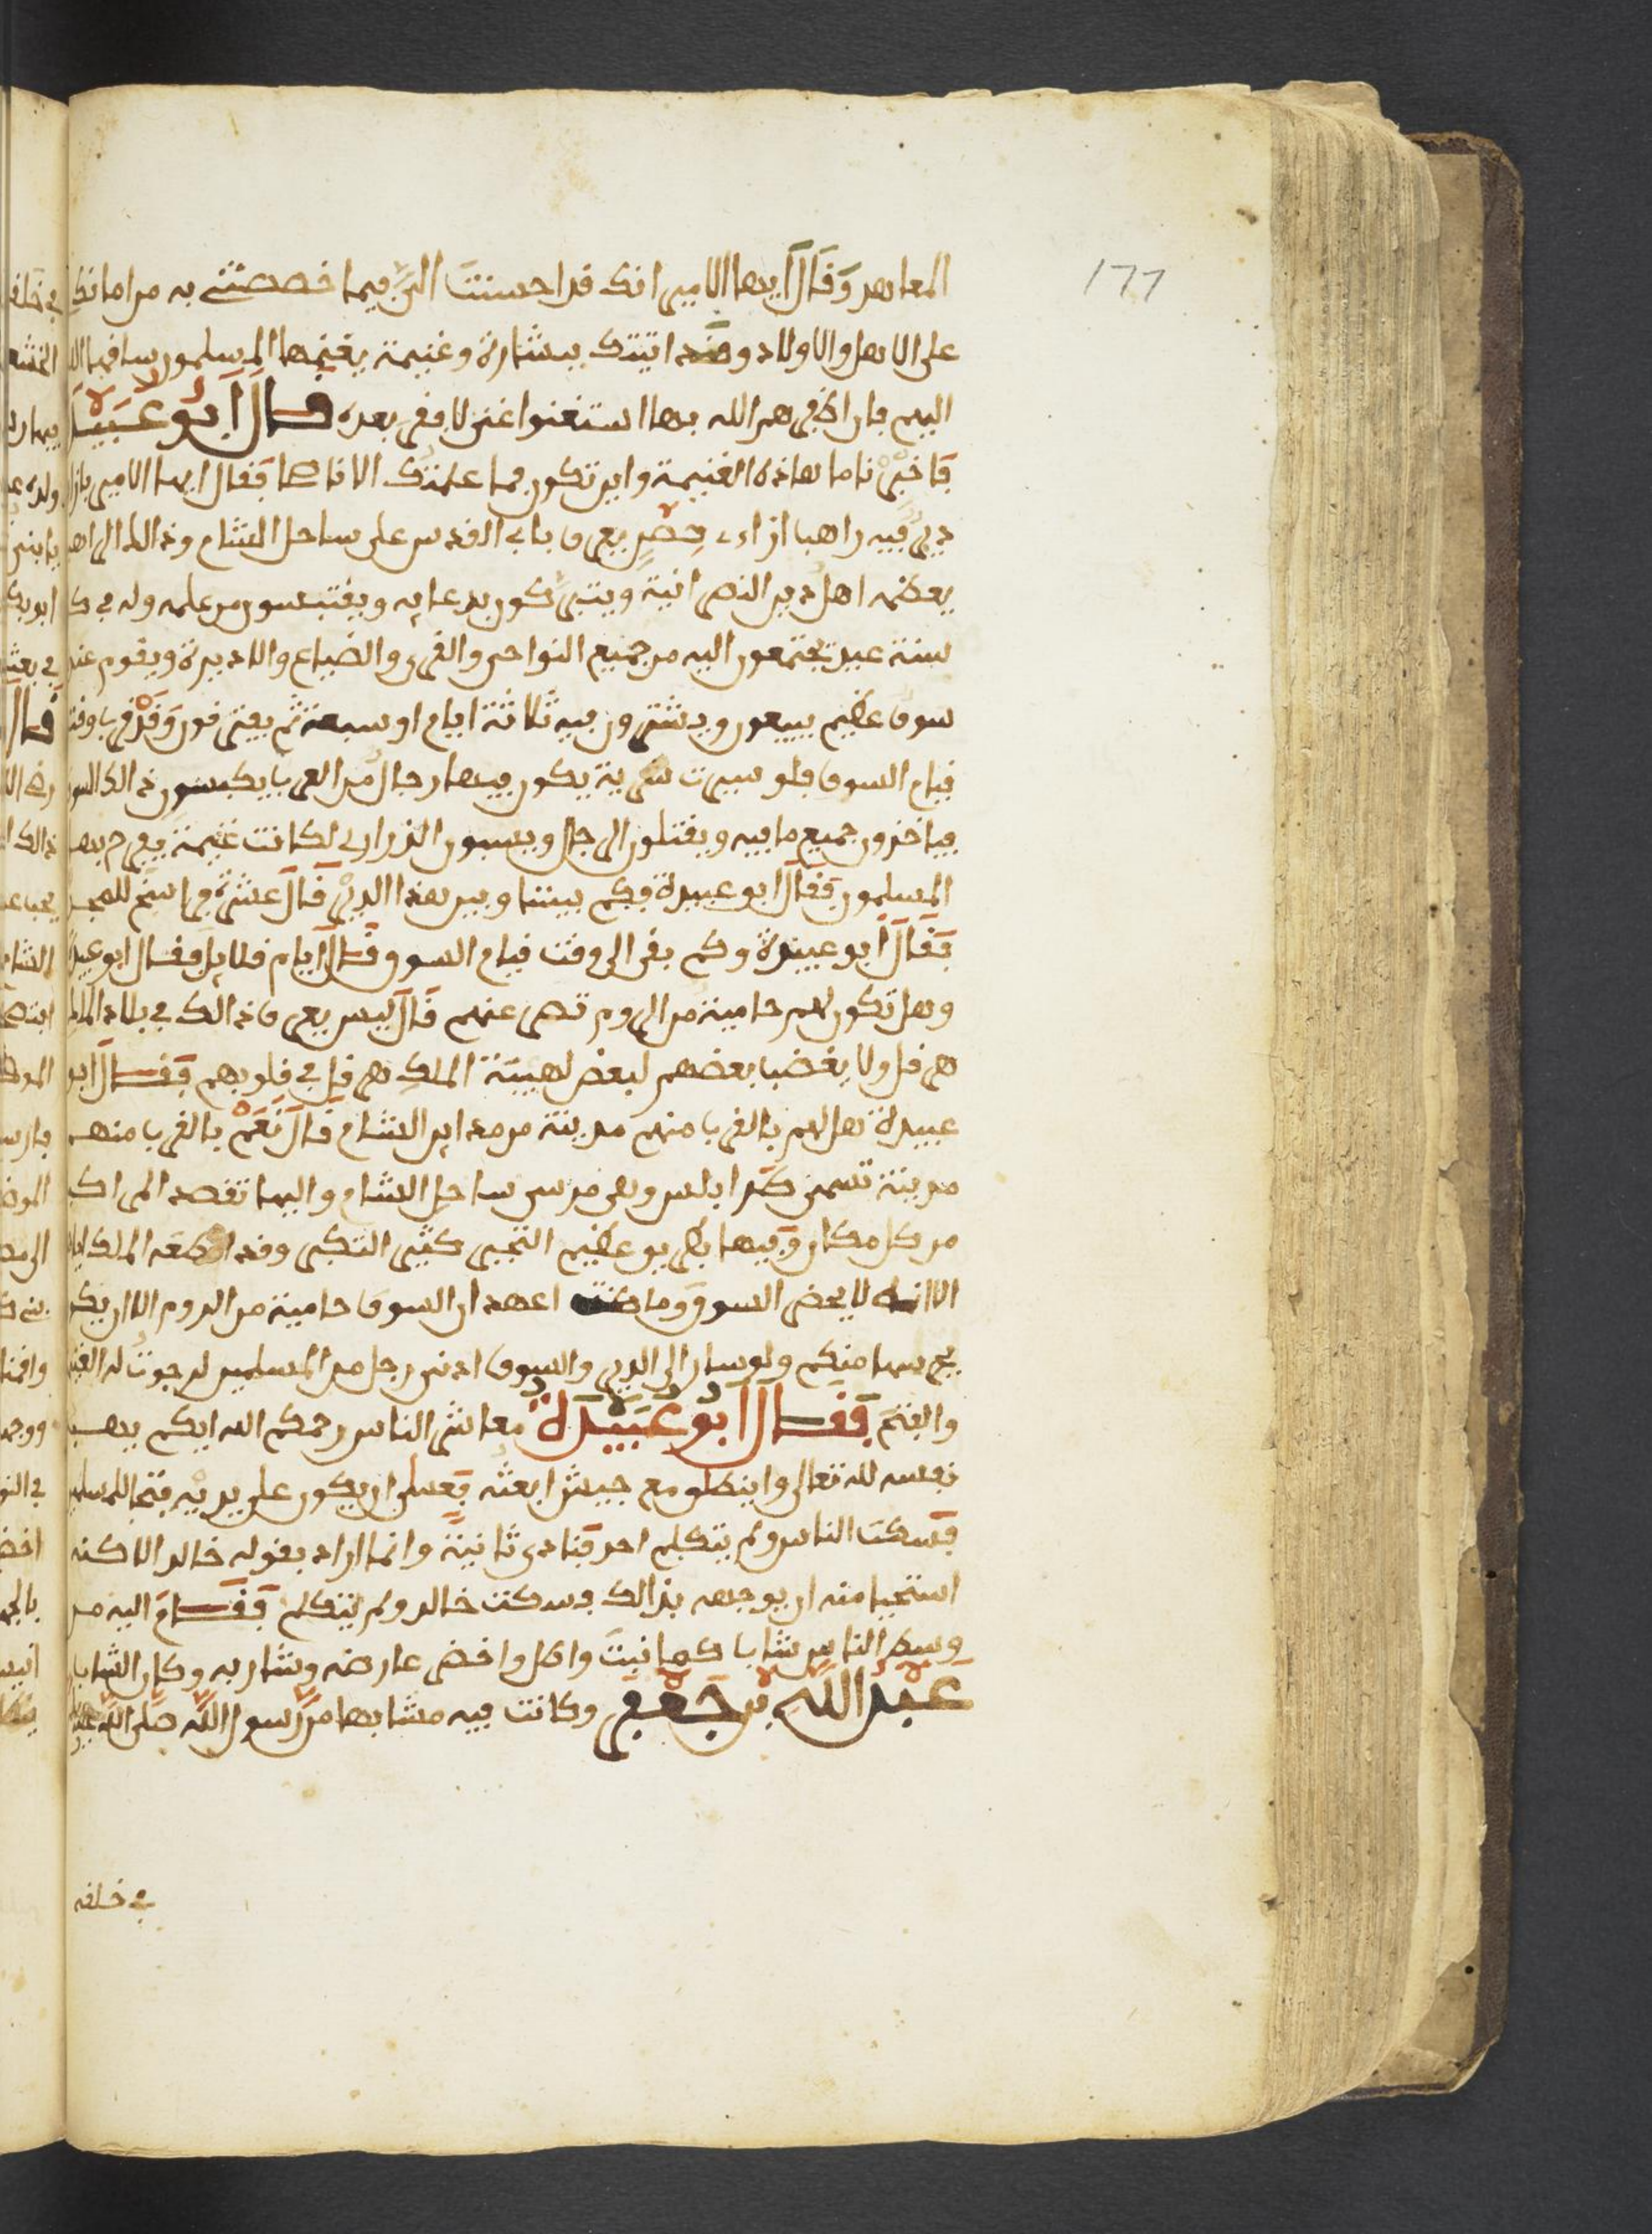 177
المعاهد وقال ايها الامير انك قد احسنت الي فيما خصصتني به من امانك
على الاهل والاولاد وقد اتيتك ببشارة وغنيمة يغنمها المسلمون ساقها الله
اليهم فان اظفرهم الله بها استغنوا غنى لا فقر بعده قال ابو عبيدة
فاخبرنا ما هاذه الغنيمة واين تكون فما علمتك الا ناصحا فقال ايها الامير بازاء
دير فيه راهبا ازاء حصن يعرف باب القدس على ساحل الشام وذالك الراهب
يعظمه اهل دين النصرانية ويتبركون بدعايه ويقتبسون من علمه وله في كل
سنة عيد يجتمعون اليه من جميع النواحي والقرى والضياع والاديرة ويقوم عنده
سوق عظيم يبيعون ويشترون فيه ثلاثة ايام او سبعة ثم يفترقون وقد قرب وقت
قيام السوق فلو سيرت سرية يكون فيها رجال من العرب يكبسون ذالك السوق
فياخذون جميع ما فيه ويقتلون الرجال ويسبون الذراري لكانت غنيمة يفرح بها
المسلمون فقال ابو عبيدة فكم بيننا وبين هذا الدير قال عشرة فراسخ للمجد
فقال ابو عبيدة وكم بقي الى وقت قيام السوق قال ايام قلايل فقال ابو عبيدة
وهل تكون لهم حامية من الروم تصد عنهم قال ليس يعرف ذالك في بلاد الملك
هرقل ولا يغضب بعضهم لبعض لهيبة الملك هرقل في قلوبهم فقال ابو
عبيدة هل لهم بالقرب منهم مدينة من مداين الشام قال نعم بالقرب منهم
مدينة تسمى طرابلس وهي مرسى ساحل الشام واليها تقصد المراكب
من كل مكان وفيها بطريق عظيم التجبر كثير التكبر وقد اقطعه الملك اياها
الا انه لا يحضر السوق وما كنت اعهد ان السوق حامية من الروم الا ان يكون
يحرسها منكم ولو سار الى الدير والسوق ادنى رجل من المسلمين لرجوت له الغنيمة
والفتح فقال ابو عبيدة معاشر الناس رحمكم الله ايكم يهب
نفسه لله تعالى وينطلق مع جيش ابعثه فعسى ان يكون على يديه فتحا للمسلمين
فسكت الناس ولم يتكلم احد فنادى ثانية وانما اراد بقوله خالد الا كنه
استحيا منه ان يوجهه بذالك فسكت خالد ولم يتكلم فقام اليه من
وسط الناس شابا كما نبت واطل واخضر عارضه وشاربه وكان الشاب
عبد الله بن جعفر وكانت فيه مشابها من رسول الله صلى الله عليه
في خلقه